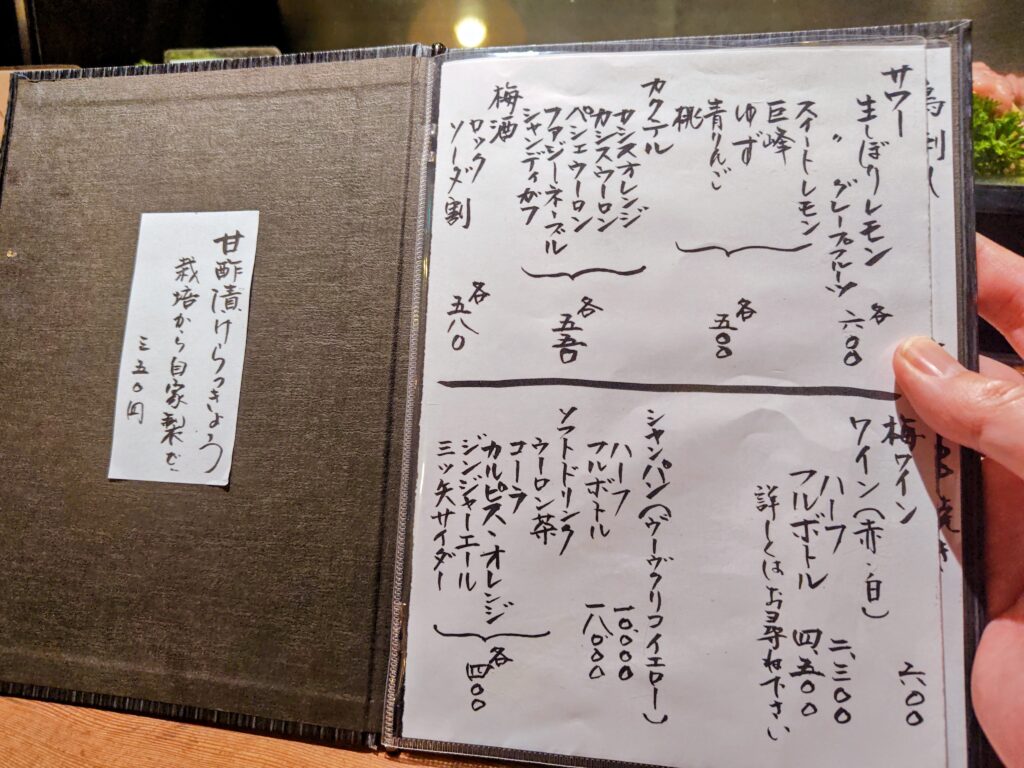 サワー
生しぼりレモン
〃 グレープフルーツ 各六〇〇
スイートレモン
巨峰
ゆず
青りんご
桃
各五〇〇
カクテル
カシスオレンジ
カシスウーロン
ペシェウーロン
ファジーネーブル
シャンディガフ
各五五〇
梅酒
ロック
ソーダ割
各五八〇
梅ワイン 六〇〇
ワイン(赤・白)
ハーフ 二、三〇〇
フルボトル 四、五〇〇
詳しくはお尋ね下さい
シャンパン(ヴーヴクリコイエロー)
ハーフ 一〇、〇〇〇
フルボトル 一八、〇〇〇
ソフトドリンク
ウーロン茶
コーラ
カルピス、オレンジ
ジンジャーエール
三ッ矢サイダー
各四〇〇
甘酢漬けらっきょう
栽培から自家製だ
三五〇円